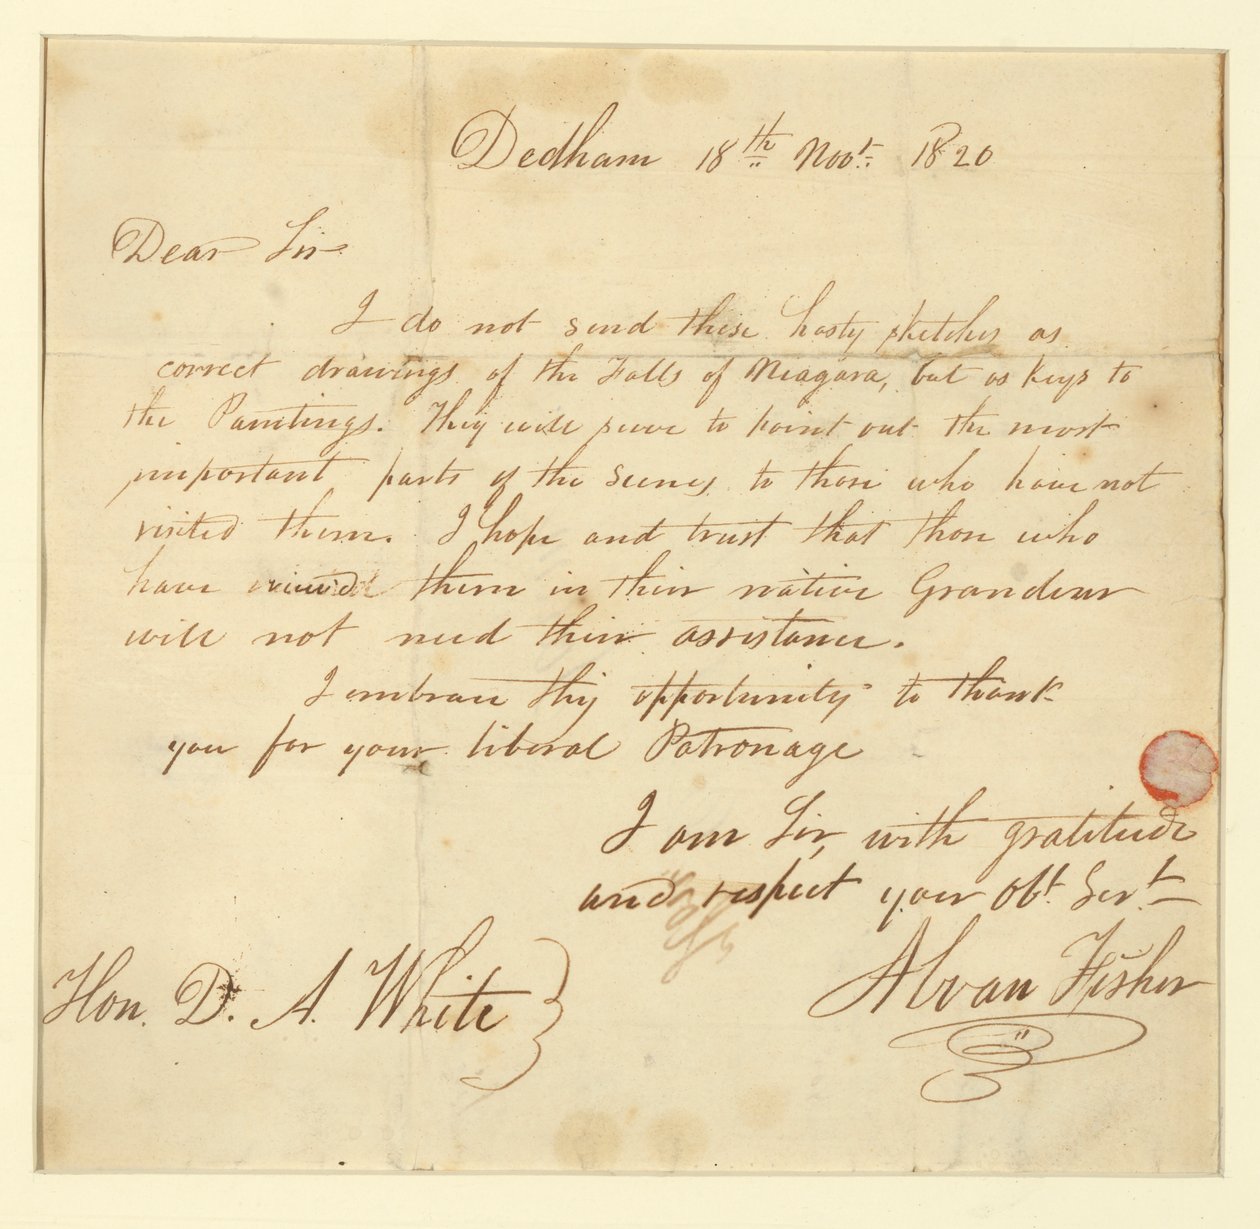 Dedham 18th Novr. 1820
Dear Sir
I do not send these hasty sketches as
correct drawings of the Falls of Niagara, but as keys to
the Paintings. They will serve to point out the most
important parts of the Scenes, to those who have not
visited them. I hope and trust that those who
have viewed them in their native Grandeur
will not need their assistance.
I embrace this opportunity to thank
you for your liberal Patronage
I am Sir, with gratitude
and respect your Obt. Servt
Hon. D. A. White
Alvan Fisher